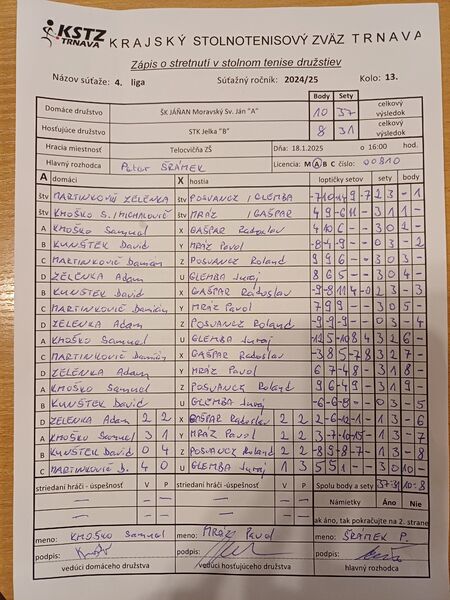 KSTZ TRNAVA KRAJSKÝ STOLNOTENISOVÝ ZVÄZ TRNAVA
Zápis o stretnutí v stolnom tenise družstiev
Názov súťaže: 4. liga Súťažný ročník: 2024/25 Kolo: 13.
Body Sety
Domáce družstvo ŠK JÁŇAN Moravský Sv. Ján "A" 10 37 celkový výsledok
Hosťujúce družstvo STK Jelka "B" 8 31 celkový výsledok
Hracia miestnosť Telocvičňa ZŠ Dňa: 18.1.2025 o 16:00 hod.
Hlavný rozhodca Peter ŠRÁMEK Licencia: M A B C číslo: 00810
A domáci X hostia loptičky setov sety body
štv MARTINKOVIČ ZELENKA štv POSVANCZ / GLEMBA 2 3 - 1
štv KMOŠKO S. / MICHALOVIČ štv MRÁZ / GAŠPAR 4 9 -6 11 - 3 1 1 -
A KMOŠKO Samuel X GAŠPAR Radoslav 4 10 6 - - 3 0 2 -
B KUNŠTEK David Y MRÁZ Pavol -8 -4 -9 - - 0 3 - 2
C MARTINKOVIČ Damián Z POSVANCZ Roland 9 9 6 - - 3 0 3 -
D ZELENKA Adam U GLEMBA Juraj 8 6 5 - - 3 0 4 -
B KUNŠTEK David X GAŠPAR Radoslav -9 -8 11 4 -0 2 3 - 3
C MARTINKOVIČ Damián Y MRÁZ Pavol 7 9 9 - - 3 0 5 -
D ZELENKA Adam Z POSVANCZ Roland -9 -9 -9 - - 0 3 - 4
A KMOŠKO Samuel U GLEMBA Juraj 3 2 6 -
C MARTINKOVIČ Damián X GAŠPAR Radoslav -3 8 5 -7 8 3 2 7 -
D ZELENKA Adam Y MRÁZ Pavol 9 6 7 -4 8 - 3 1 8 -
A KMOŠKO Samuel Z POSVANCZ Roland 9 6 -4 9 - 3 1 9 -
B KUNŠTEK David U GLEMBA Juraj -6 -6 -8 - - 0 3 - 5
D ZELENKA Adam 2 2 X GAŠPAR Radoslav 2 2 -2 -6 12 -1 - 1 3 - 6
A KMOŠKO Samuel 3 1 Y MRÁZ Pavol 2 2 3 -7 -10 -15 - 1 3 - 7
B KUNŠTEK David 0 4 Z POSVANCZ Roland 2 2 -8 9 -8 -7 - 1 3 - 8
C MARTINKOVIČ D. 4 0 U GLEMBA Juraj 1 3 5 5 1 - - 3 0 10 -
striedaní hráči - úspešnosť V P striedaní hráči - úspešnosť V P Spolu body a sety 37-31 10-8
Námietky Áno Nie
ak áno, tak pokračujte na 2. strane
meno: KMOŠKO Samuel meno: MRÁZ Pavol meno: ŠRÁMEK P.
podpis: podpis: podpis:
vedúci domáceho družstva vedúci hosťujúceho družstva hlavný rozhodca